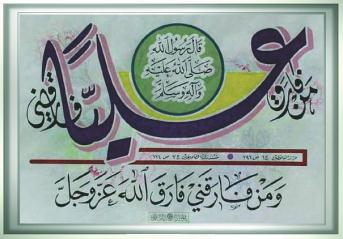 قَالَ رَسُولُ اللهِ
صَلَّى اللهُ عَلَيْهِ
وَآلِهِ وَسَلَّمَ
مَنْ فَارَقَ عَلِيًّا فَارَقَنِي
وَمَنْ فَارَقَنِي فَارَقَ اللهَ عَزَّ وَجَلَّ